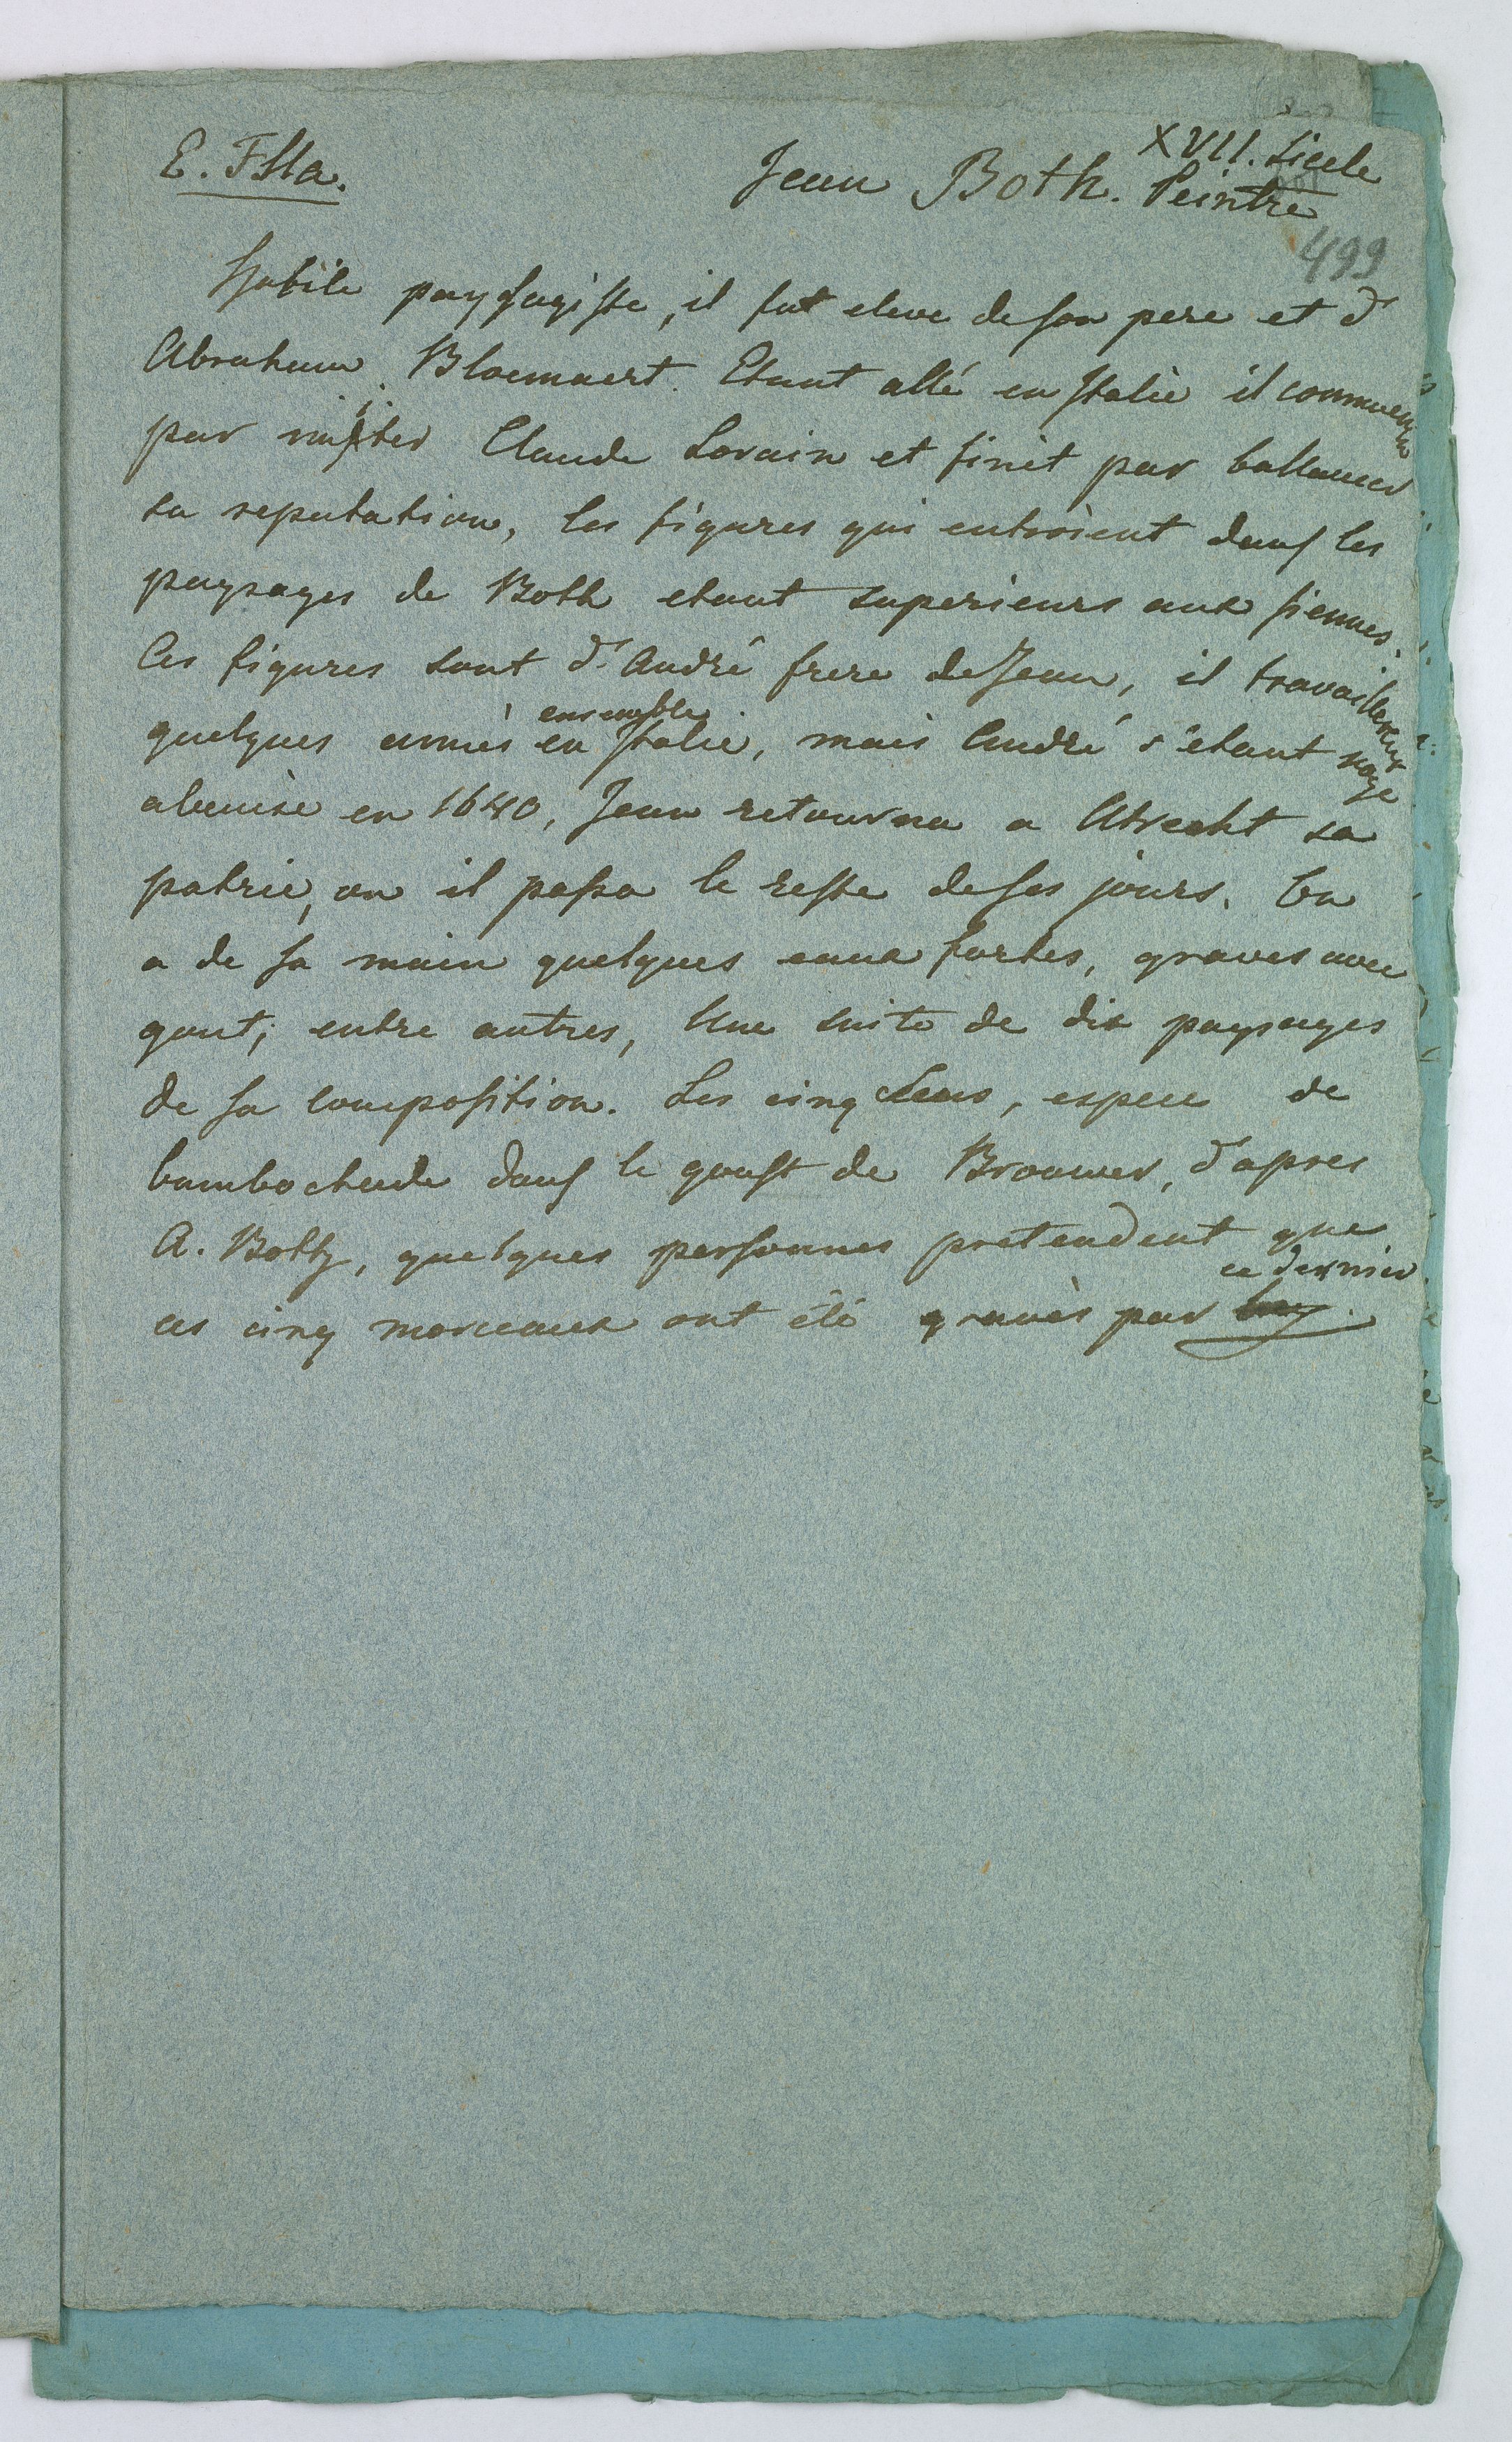 E. Flla.
XVII. Siecle
Jean Both. Peintre
499
Habile paysagiste, il fut eleve de son pere et d'
Abraham Bloemaert. Etant allé en Italie il commença
par imiter Claude Lorain et finit par ballancer
sa reputation, les figures qui entroient dans les
paysages de Both etant superieurs aux siennes.
Ces figures sont d'André frere de Jean, il travaillerent
ensemble
quelques années en Italie, mais André s'étant noyé
a Venise en 1640, Jean retourna a Utrecht sa
patrie, ou il passa le reste de ses jours. On
a de sa main quelques eaux fortes, graves avec
gout; entre autres, Une suite de dix paysages
de sa composition. Les cinq Sens, espece de
bambochade dans le goust de Brouwer, d'apres
A. Both, quelques personnes pretendent que
ce dernier
ces cinq morceaux ont été gravés par luy.